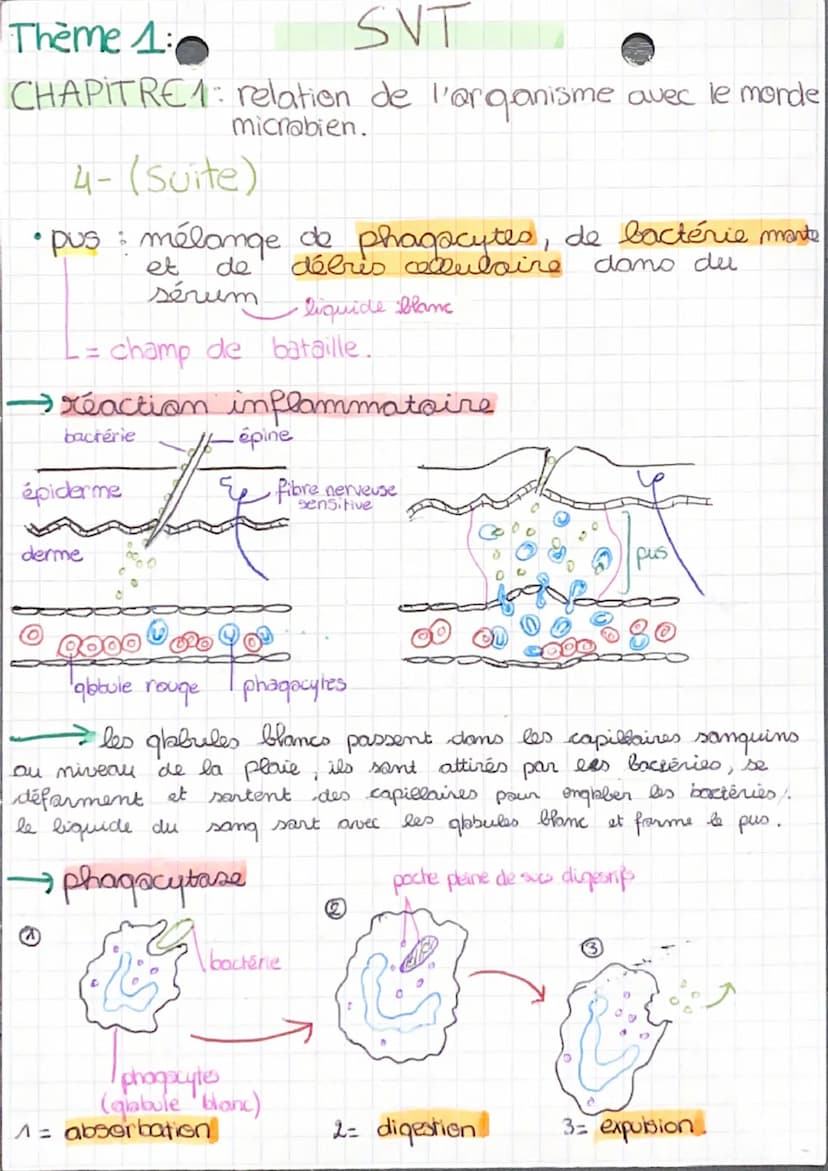 Thème 1:
SVT
CHAPITRE 1: relation de l'organisme avec le monde
microbien.
4- (suite)
• pus : mélange de phagocytes, de bactérie morte
et de débris cellulaire dans du
sérum
liquide blanc
= champ de bataille.
→ réaction inflammatoire
bactérie
épine
épiderme
fibre nerveuse
sensitive
derme
pus
globule rouge
phagocytes
→ les globules blancs passent dans les capillaires sanguins
au niveau de la plaie, ils sont attirés par les bactéries, se
déforment et sortent des capillaires pour englober les bactéries.
le liquide du sang sort avec les globules blanc et forme le pus.
→ phagocytose
poche pleine de sucs digestifs
1
2
3
bactérie
phagocytes
(globule blanc)
1 = absorbation
2= digestion
3= expulsion.